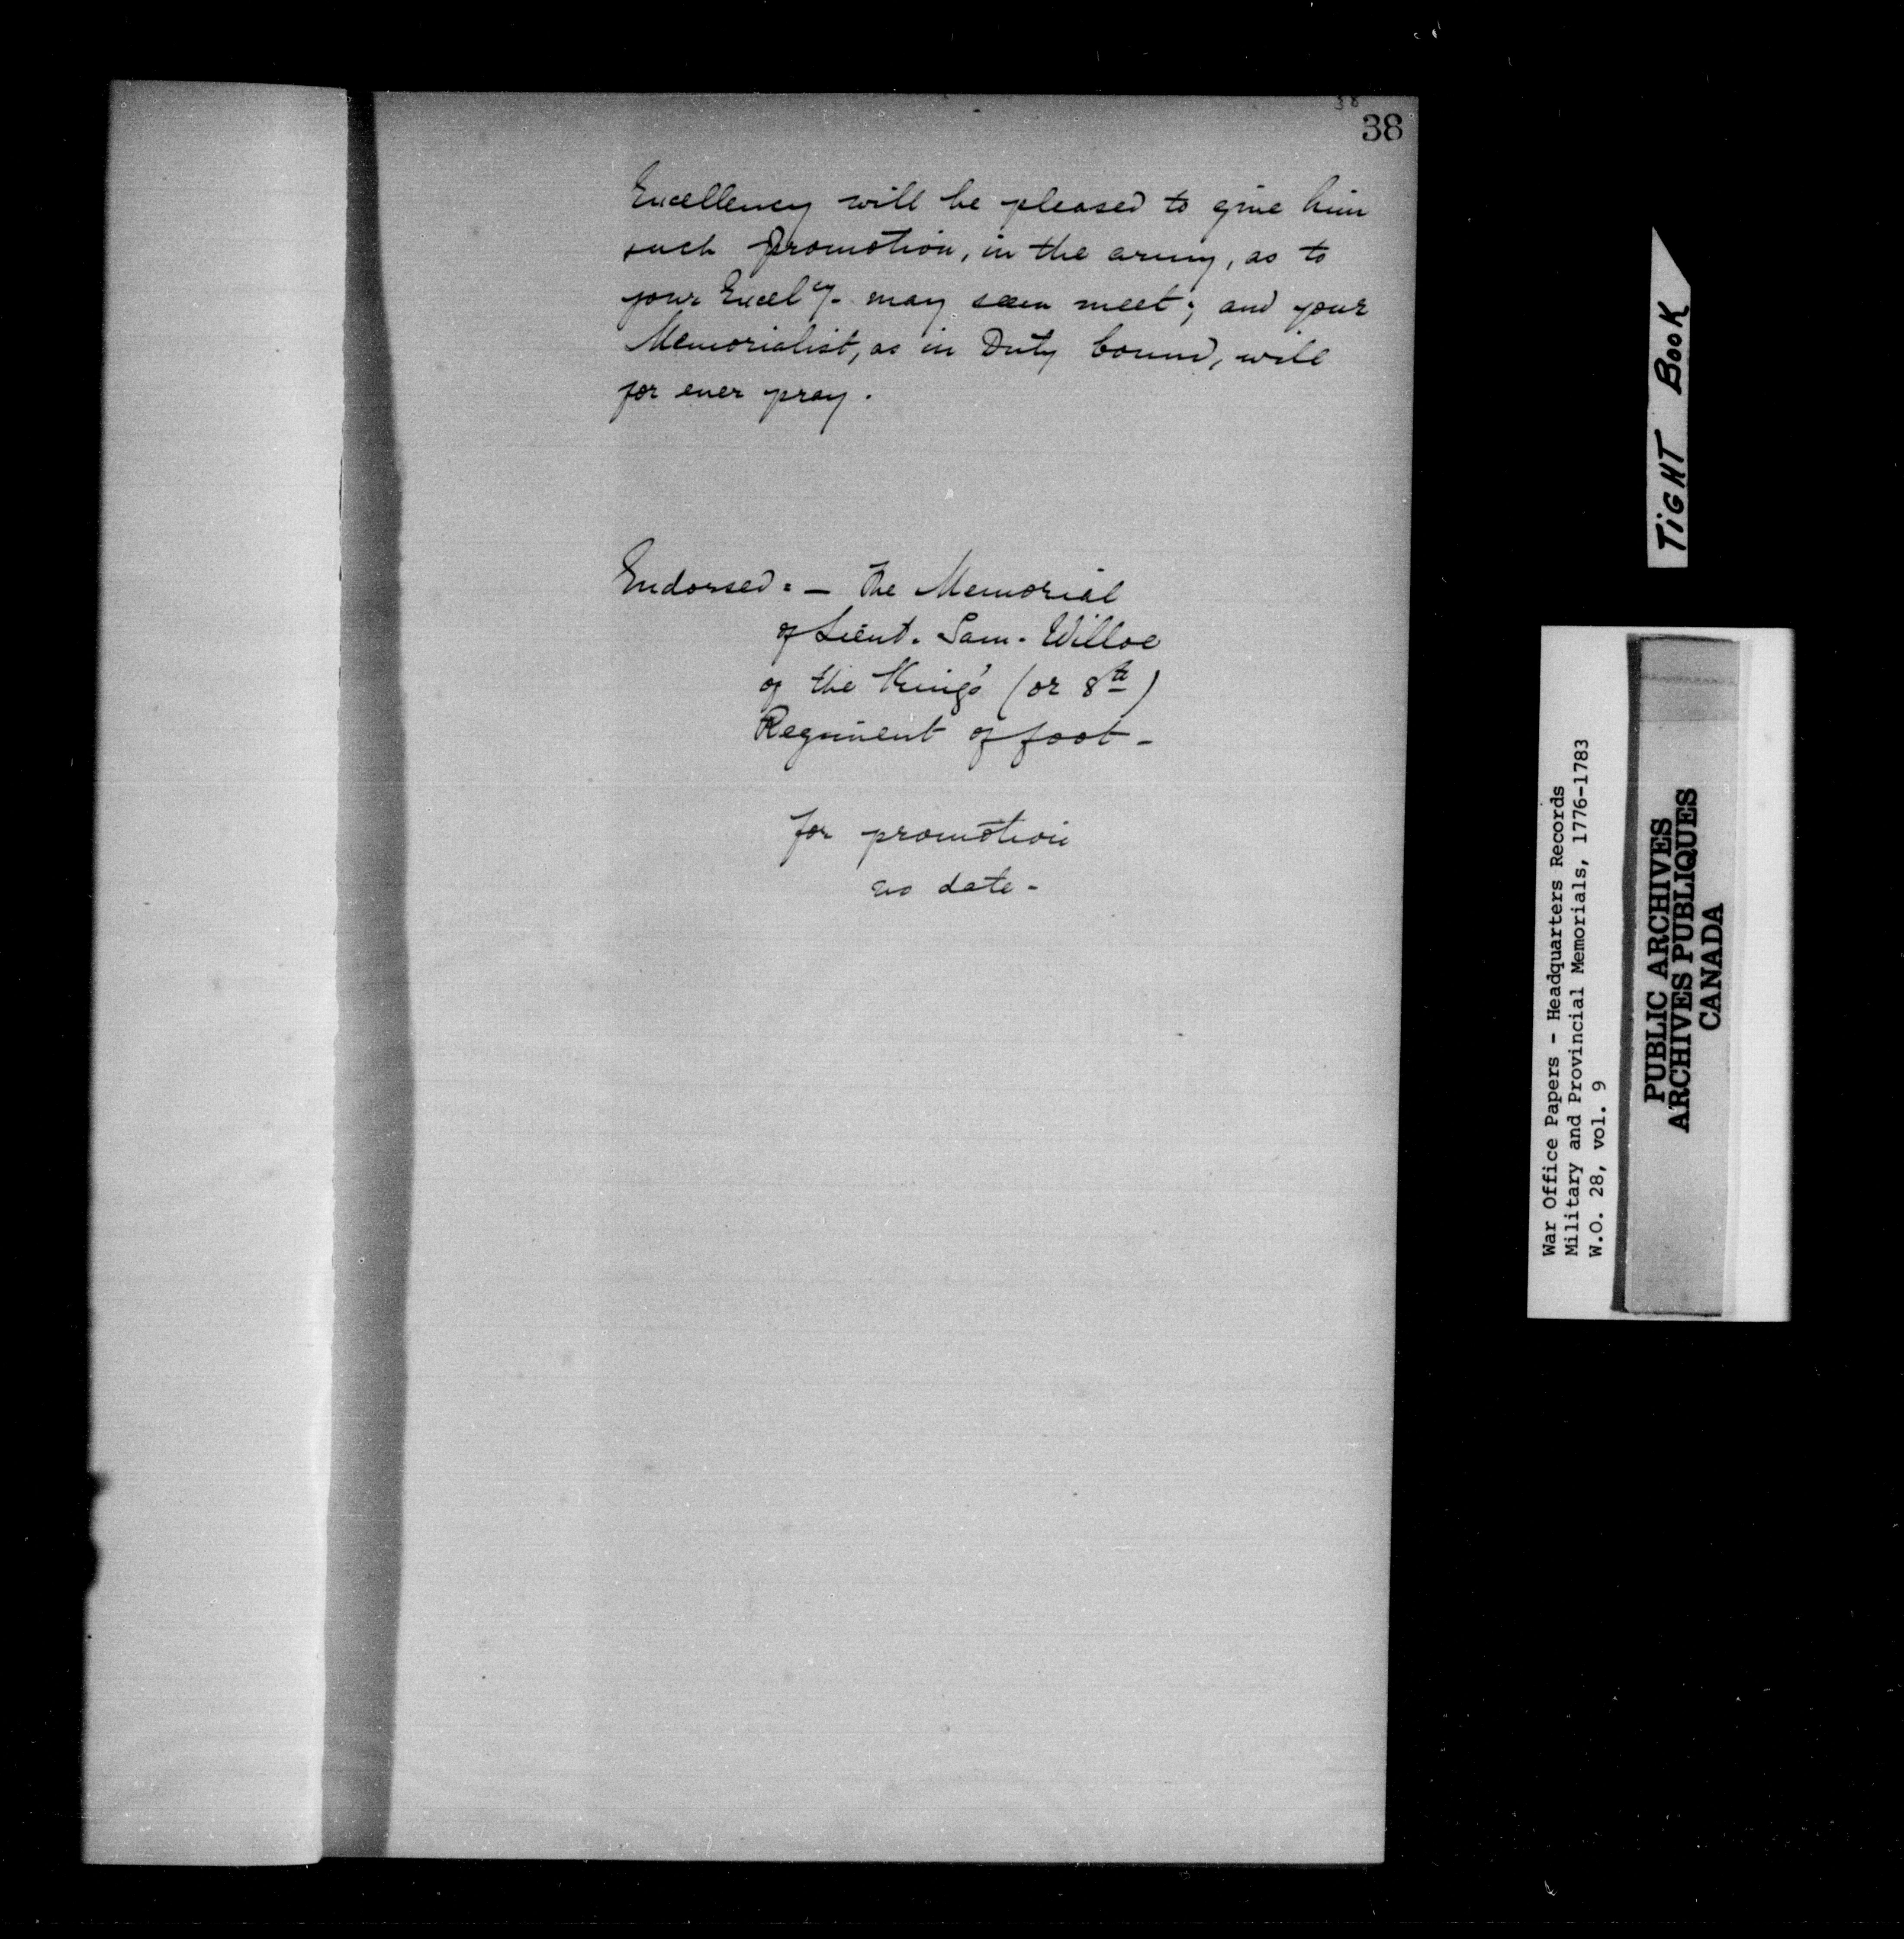 38
38
Excellency will be pleased to give him
such promotion, in the army, as to
your Excely. may seem meet; and your
Memorialist, as in Duty bound, will
for ever pray.
Endorsed:— The Memorial
of Lieut. Sam. Willoe
of the King's (or 8th)
Regiment of foot-
for promotion
no date-
TIGHT BOOK
War Office Papers - Headquarters Records
Military and Provincial Memorials, 1776-1783
W.O. 28, vol. 9
PUBLIC ARCHIVES
ARCHIVES PUBLIQUES
CANADA